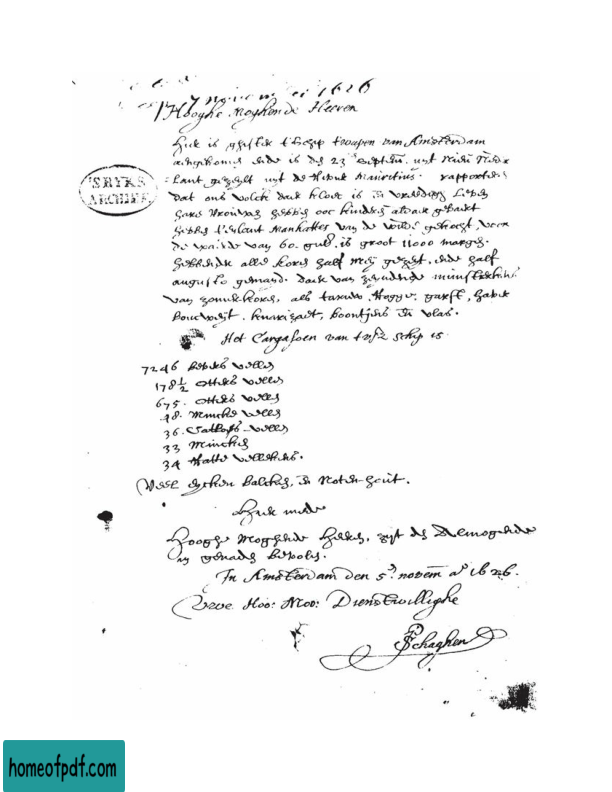 7 november 1626
Hooghe Moghende Heeren
Hier is ghister t'schip t'wapen van Amsterdam
aengekomen ende is den 23 septem. uyt Nieu Neder
Lant gezeylt uyt de rivier Mauritius. rapporteren
dat ons volck daer kloec is en vreedigh leven
hare vrouwen hebben ooc kinderen aldaer gebaert
hebben t'eylant Manhattes van de wilde gekocht, voor
de waerde van 60. guld. is groot 11000 morgen.
hebbende alle koren half mey gezeyt, ende half
augusto gemayd. daer van zeyndende munsterkens
van zomerkoren, als tarwe, Rogge, garst, haver
boucweyt, knarizaet, boontjens en vlas.
Het Cargasoen van tvsz schip is
7246 bevers vellen
178½ otters vellen
675. otters vellen
48. Mincke vellen
36. Catlosz vellen
33 Mincken
34 Ratte vellekens.
Veel eycken balcken, en Noten-hout.
Hier mede
Hooghe Moghende Heeren, zyt den Almogende
in genade bevolen.
In Amsterdam den 5.en novem aº 1626.
Uwe Hoo: Moo: Dienstwillighe
P Schaghen
'SRYKS
ARCHIEF
homeofpdf.com